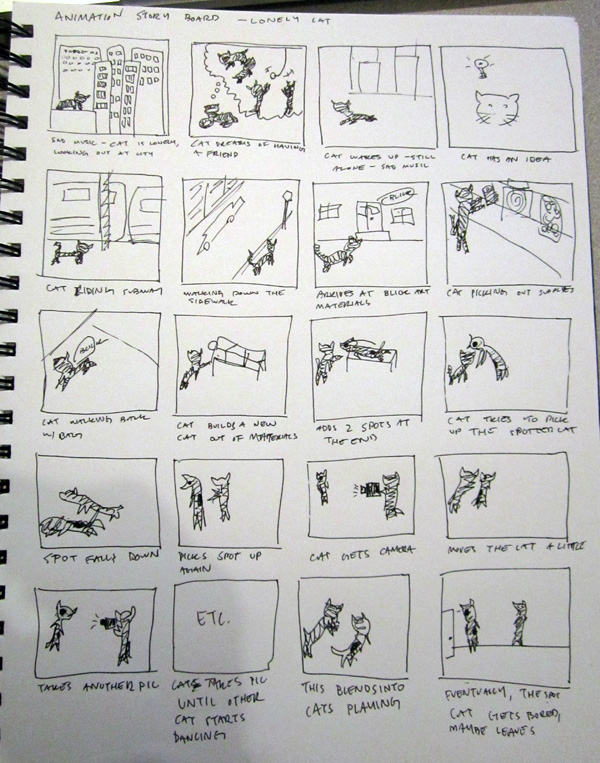 ANIMATION STORY BOARD - LONELY CAT
SAD MUSIC - CAT IS LONELY,
LOOKING OUT AT CITY
CAT DREAMS OF HAVING
A FRIEND
CAT WAKES UP - STILL
ALONE - SAD MUSIC
CAT HAS AN IDEA
CAT RIDING SUBWAY
WALKING DOWN THE
SIDEWALK
BLICK
ARRIVES AT BLICK ART
MATERIALS
CAT PICKING OUT SUPPLIES
BLICK
CAT WALKING BACK
W/ BAG
CAT BUILDS A NEW
CAT OUT OF MATERIALS
ADDS 2 SPOTS AT
THE END
CAT TRIES TO PICK
UP THE SPOTTED CAT
SPOT FALLS DOWN
PICKS SPOT UP
AGAIN
CAT GETS CAMERA
MOVES THE CAT A LITTLE
TAKES ANOTHER PIC
ETC.
CATS TAKES PIC
UNTIL OTHER
CAT STARTS
DANCING
THIS BLENDS INTO
CATS PLAYING
EVENTUALLY, THE SPOT
CAT GETS BORED,
MAYBE LEAVES